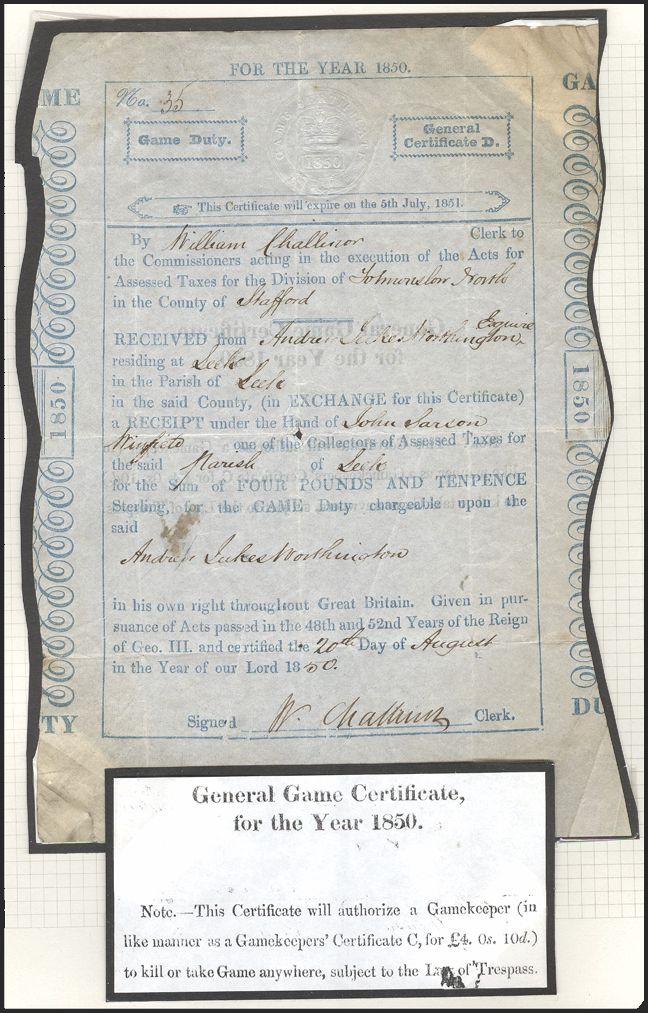 FOR THE YEAR 1850.
ME
GA
No. 35
Game Duty.
1850
General
Certificate D.
This Certificate will expire on the 5th July, 1851.
By William Challinor Clerk to
the Commissioners acting in the execution of the Acts for
Assessed Taxes for the Division of Totmonslow North
in the County of Stafford
Esquire
RECEIVED from Andrew Jukes Worthington
residing at Leek
in the Parish of Leek
in the said County, (in EXCHANGE for this Certificate)
a RECEIPT under the Hand of John Sarson
Wingfield one of the Collectors of Assessed Taxes for
the said Parish of Leek
for the Sum of FOUR POUNDS AND TENPENCE
Sterling, for the GAME Duty chargeable upon the
said
Andrew Jukes Worthington
in his own right throughout Great Britain. Given in pur-
suance of Acts passed in the 48th and 52nd Years of the Reign
of Geo. III. and certified the 20th Day of August
in the Year of our Lord 1850.
Signed W. Challinor Clerk.
1850
1850
TY
DU
General Game Certificate,
for the Year 1850.
Note.—This Certificate will authorize a Gamekeeper (in
like manner as a Gamekeepers' Certificate C, for £4. 0s. 10d.)
to kill or take Game anywhere, subject to the Law of Trespass.